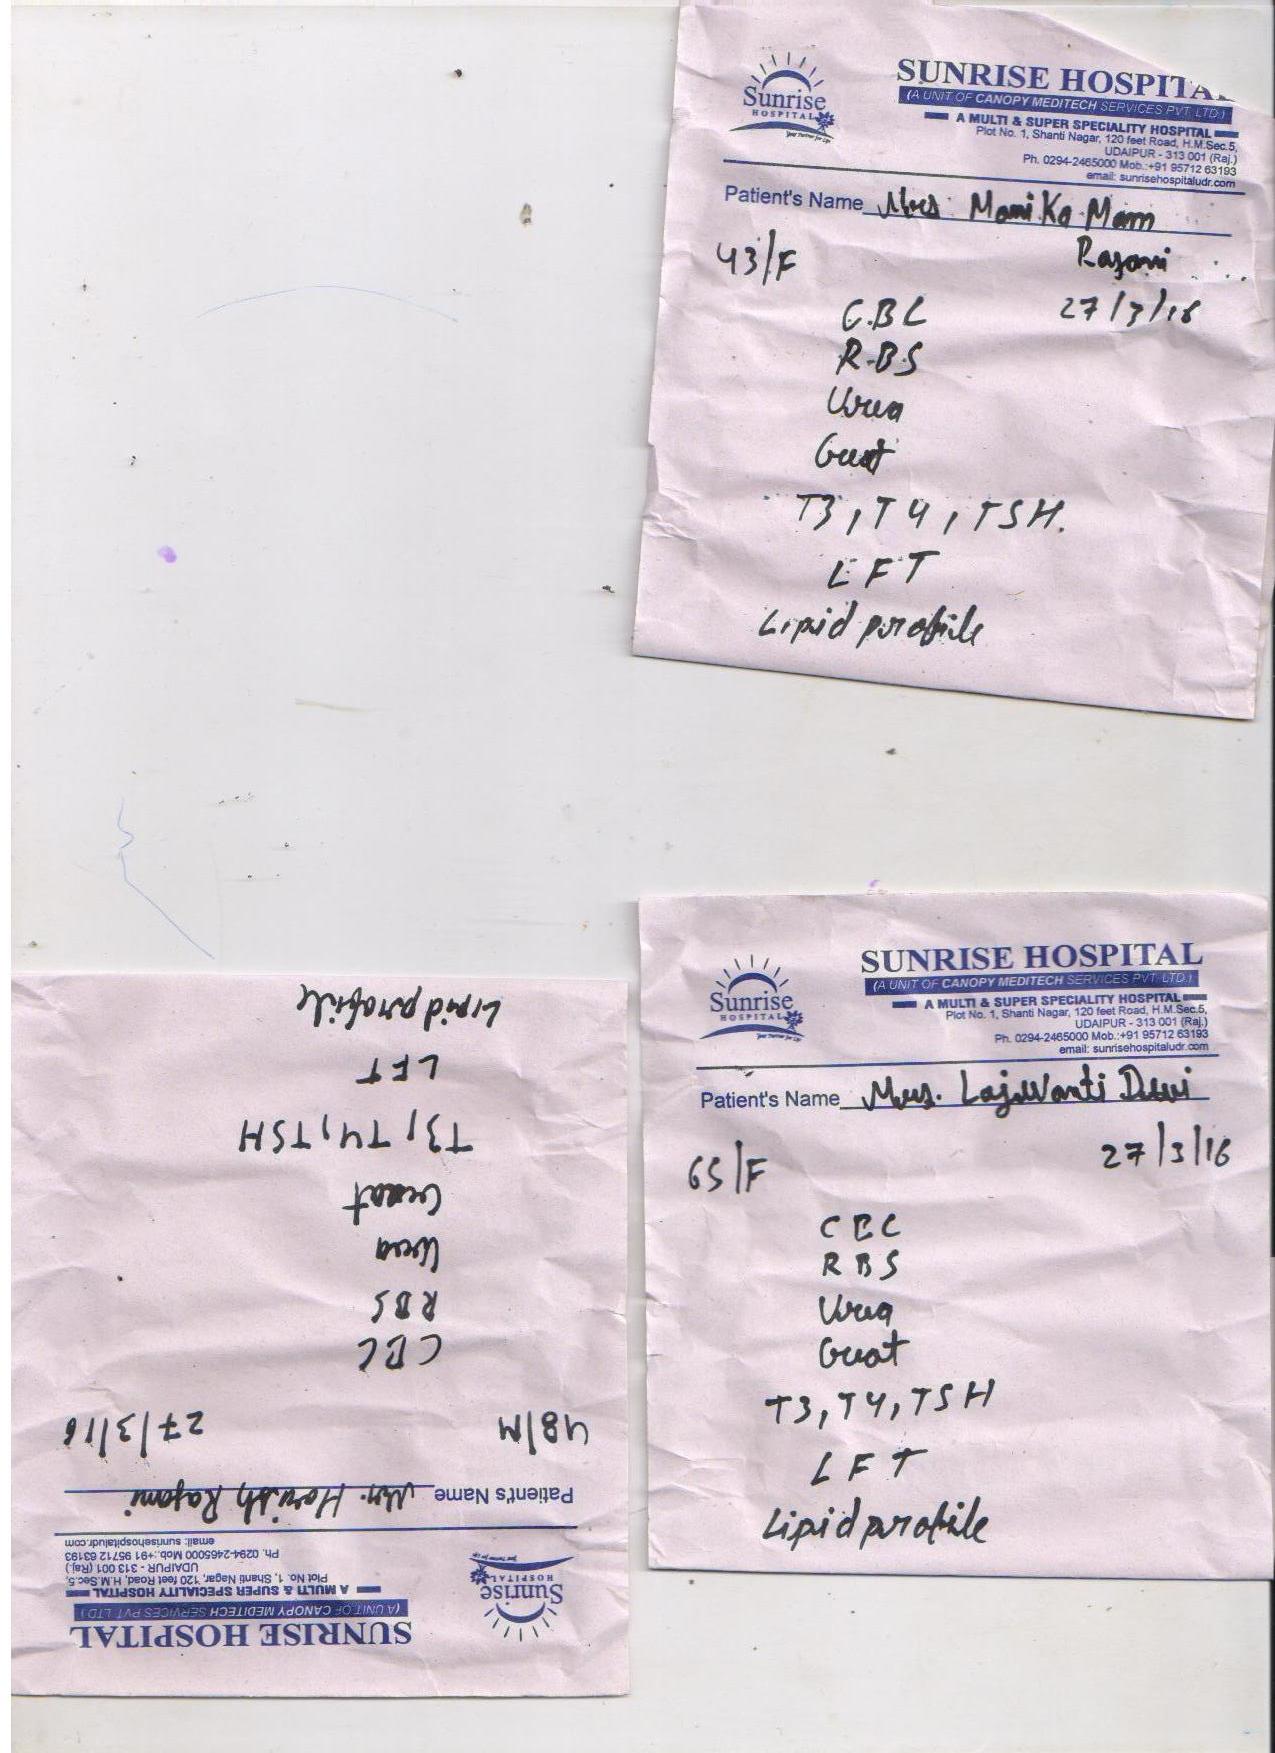 Sunrise
HOSPITAL
Your Partner for Life
SUNRISE HOSPITAL
(A UNIT OF CANOPY MEDITECH SERVICES PVT. LTD.)
A MULTI & SUPER SPECIALITY HOSPITAL
Plot No. 1, Shanti Nagar, 120 feet Road, H.M.Sec.5,
UDAIPUR - 313 001 (Raj.)
Ph. 0294-2465000 Mob.:+91 95712 63193
email: sunrisehospitaludr.com
Patient's Name Mrs. Manika Mam
Rajani
43/F
27/3/16
C.B.C
R.B.S
Urea
Creat
T3, T4, TSH.
LFT
Lipid profile
Sunrise
HOSPITAL
Your Partner for Life
SUNRISE HOSPITAL
(A UNIT OF CANOPY MEDITECH SERVICES PVT. LTD.)
A MULTI & SUPER SPECIALITY HOSPITAL
Plot No. 1, Shanti Nagar, 120 feet Road, H.M.Sec.5,
UDAIPUR - 313 001 (Raj.)
Ph. 0294-2465000 Mob.:+91 95712 63193
email: sunrisehospitaludr.com
Patient's Name Mrs. Lajwanti Devi
65/F 27/3/16
CBC
RBS
Urea
Creat
T3, T4, TSH
LFT
Lipid profile
Sunrise
HOSPITAL
Your Partner for Life
SUNRISE HOSPITAL
(A UNIT OF CANOPY MEDITECH SERVICES PVT. LTD.)
A MULTI & SUPER SPECIALITY HOSPITAL
Plot No. 1, Shanti Nagar, 120 feet Road, H.M.Sec.5,
UDAIPUR - 313 001 (Raj.)
Ph. 0294-2465000 Mob.:+91 95712 63193
email: sunrisehospitaludr.com
Patient's Name Mr. Harish Rajani
48/M 27/3/16
CBC
RBS
Urea
Creat
T3, T4, TSH
LFT
Lipid profile